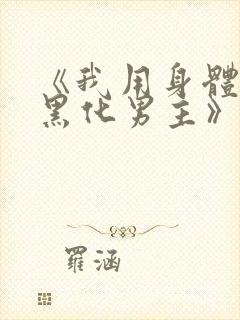 《我用身體
黑化男主》
羅涵